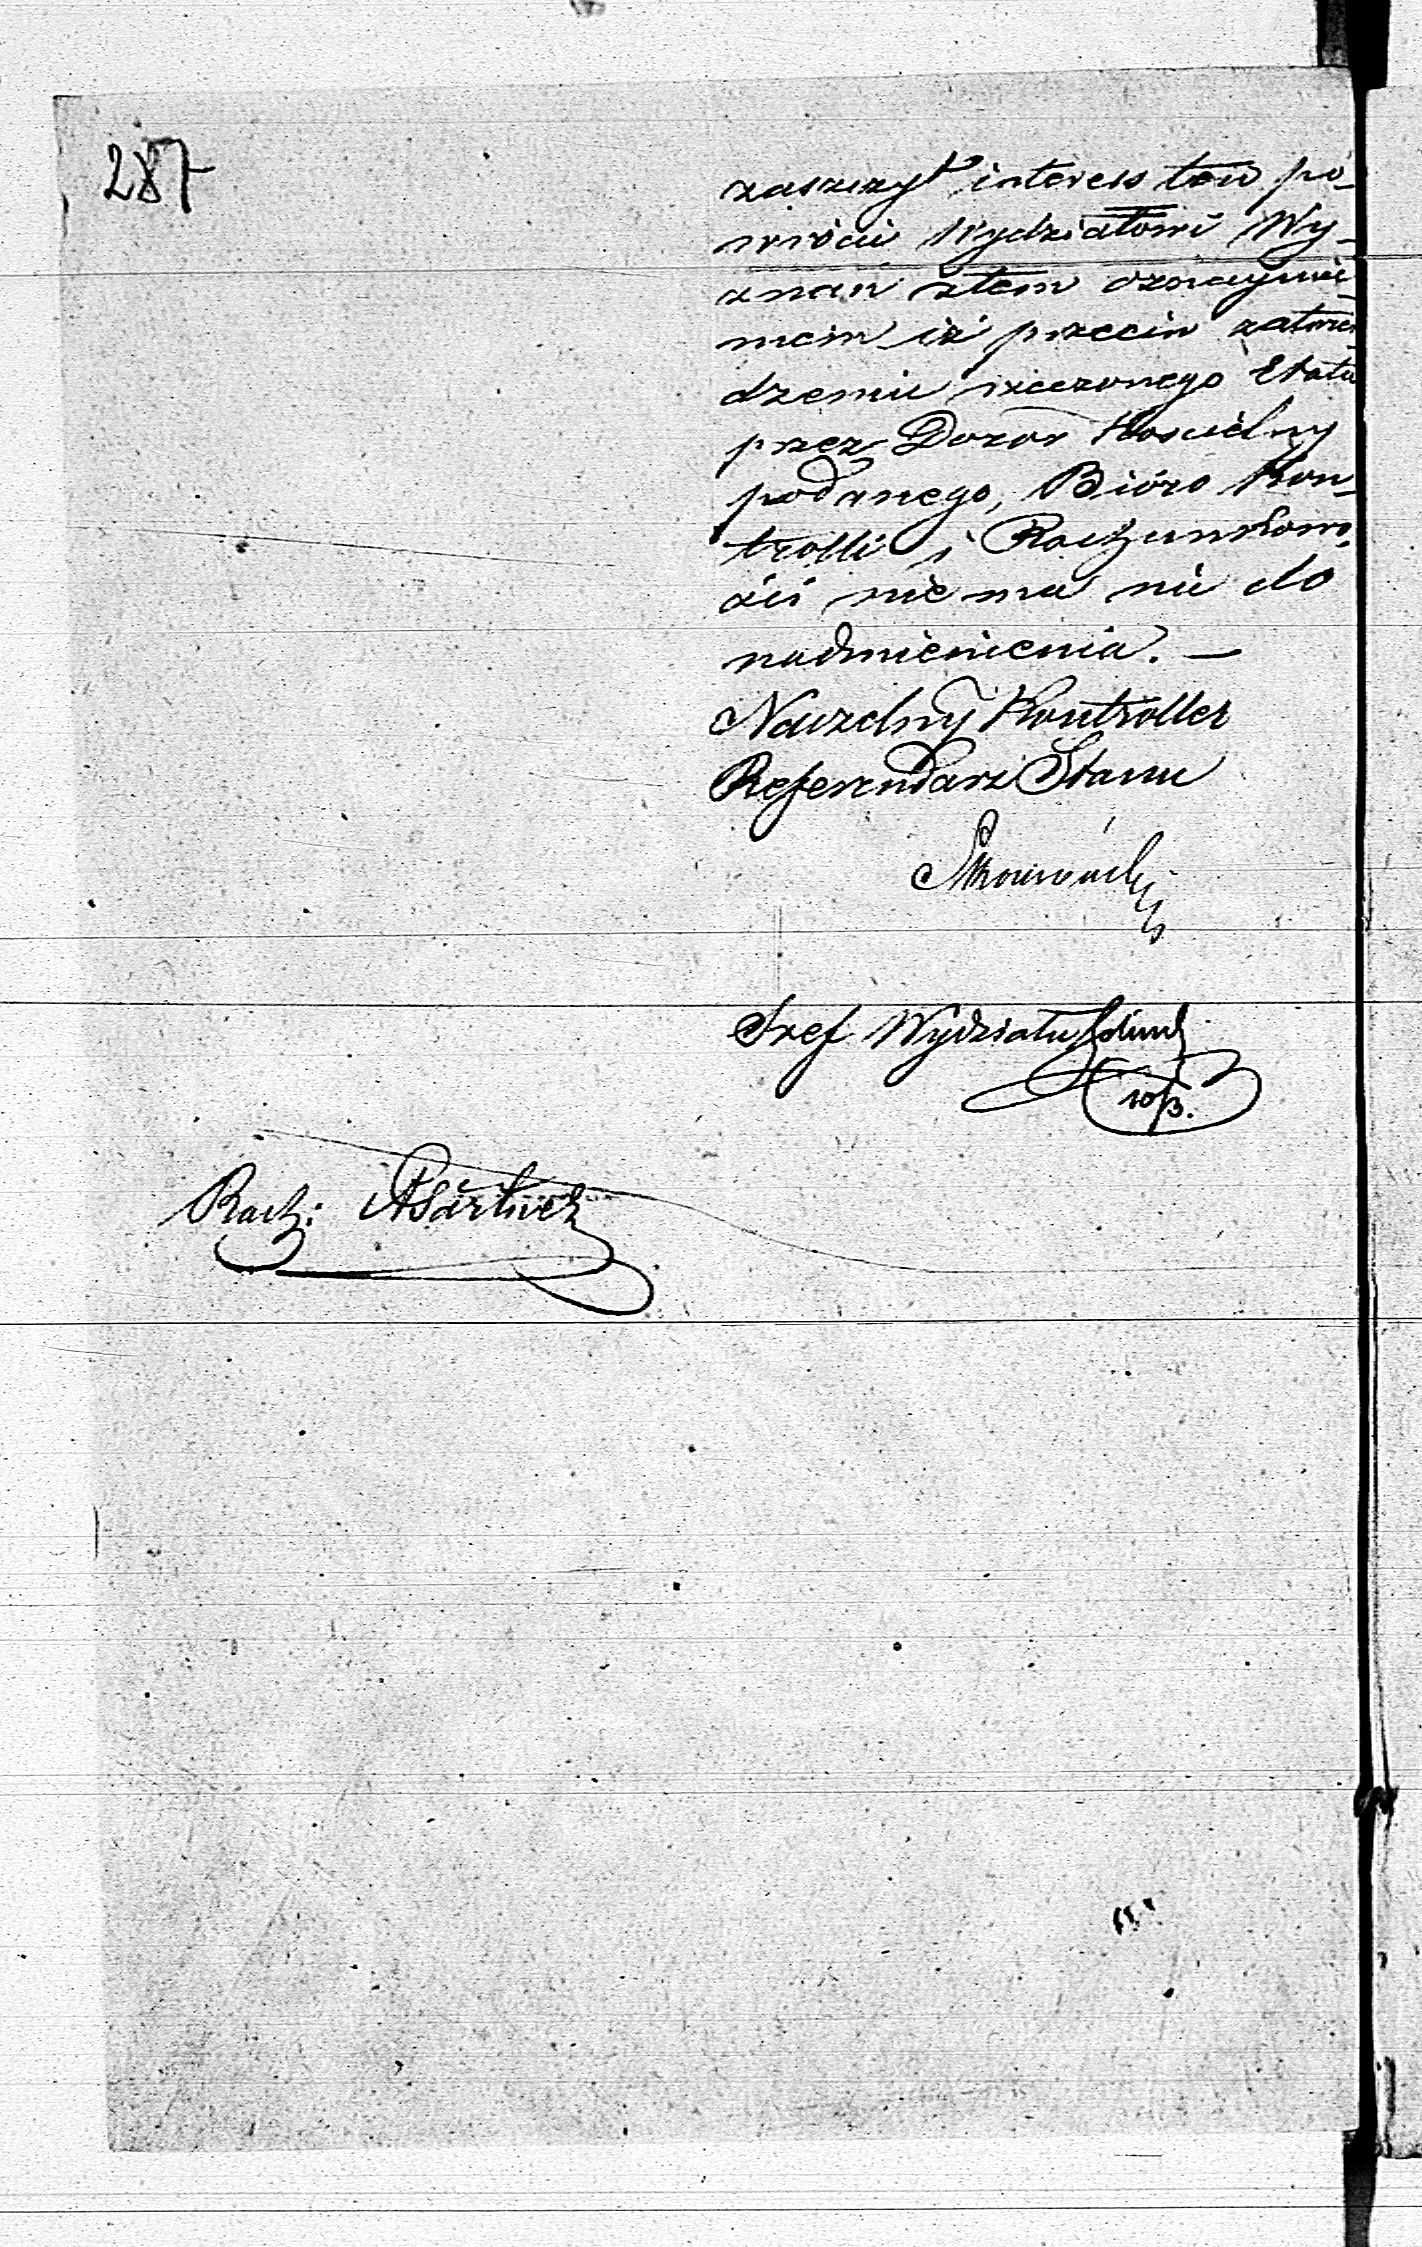 287
zaszczyt interess ten po-
wrócić Wydziałowi Wy-
znań z tem oznaymie-
niem iż przeciw zatwier-
dzeniu rzeczonego Etatu
przez Dozor Kościelny
podanego, Bióro Kon-
trolli i Rachunkowo-
ści nie ma nic do
nadmienienia. —
Naczelny Kontroller
Referendarz Stanu
Szef Wydziału
10/3.
Rach: